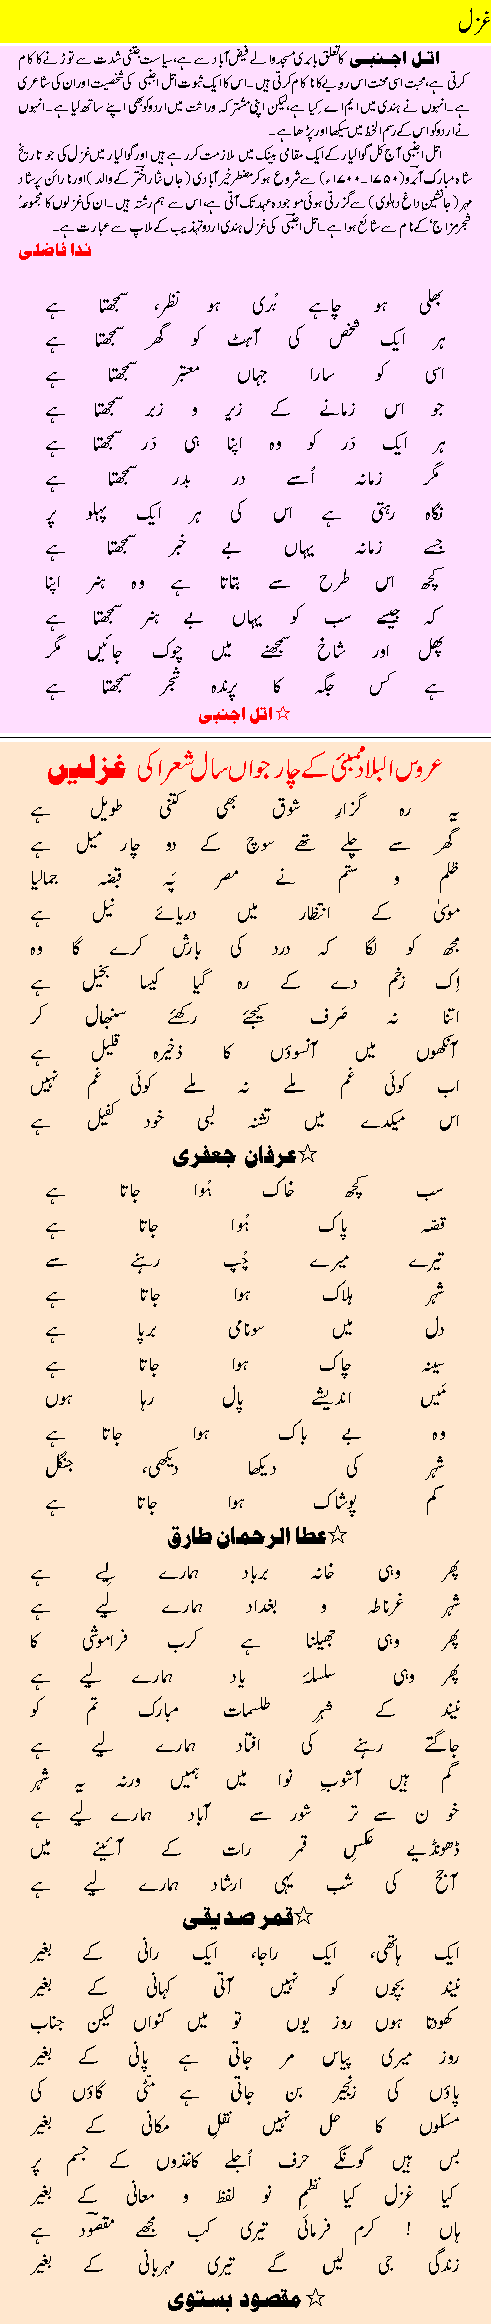 غزل
اتل اجنبی کا تعلق بابری مسجد والے فیض آباد سے ہے، سیاست جتنی شدت سے توڑنے کا کام
کرتی ہے، محبت اسی محنت اس رویے کا ناکام کرتی ہیں۔ اس کا ایک ثبوت اتل اجنبی کی شخصیت اور ان کی شاعری
ہے۔ انہوں نے ہندی میں ایم اے کیا ہے، لیکن اپنی مشترکہ وراثت میں اردو کو بھی اپنے ساتھ لیا ہے۔ انہوں
نے اردو کو اس کے رسم الخط میں سیکھا اور پڑھا ہے۔
اتل اجنبی آج کل گوالیار کے ایک مقامی بینک میں ملازمت کر رہے ہیں اور گوالیار میں غزل کی جو تاریخ
شاہ مبارک آبرو (۱۷۵۰-۱۷۰۰ء) سے شروع ہو کر مضطر خیر آبادی (جاں نثار اختر کے والد) اور نارائن پرشاد
مہر (جانشین داغ دہلوی) سے گزرتی ہوئی موجودہ عہد تک آتی ہے، اس سے ہم رشتہ ہیں۔ ان کی غزلوں کا مجموعہ
شجر مزاج' کے نام سے شائع ہوا ہے۔ اتل اجنبی کی غزل ہندی اردو تہذیب کے ملاپ سے عبارت ہے۔
ندا فاضلی
بھلی ہو چاہے بُری ہو نظر، سمجھتا ہے
ہر ایک شخص کی آہٹ کو گھر سمجھتا ہے
اسی کو سارا جہاں معتبر سمجھتا ہے
جو اس زمانے کے زیر و زبر سمجھتا ہے
ہر ایک در کو وہ اپنا ہی دَر سمجھتا ہے
مگر زمانہ اُسے در بدر سمجھتا ہے
نگاہ رہتی ہے اس کی ہر ایک پہلو پر
جسے زمانہ یہاں بے خبر سمجھتا ہے
کچھ اس طرح سے بتاتا ہے وہ ہنر اپنا
کہ جیسے سب کو یہاں بے ہنر سمجھتا ہے
پھل اور شاخ سمجھنے میں چوک جائیں مگر
ہے کس جگہ کا پرندہ شجر سمجھتا ہے
☆ اتل اجنبی
عروس البلاد ممبئی کے چار جواں سال شعرا کی غزلیں
یہ رہ گزارِ شوق بھی کتنی طویل ہے
گھر سے چلے تھے سوچ کے دو چار میل ہے
ظلم و ستم نے مصر پَہ قبضہ جمالیا
موسیٰ کے انتظار میں دریائے نیل ہے
مجھ کو لگا کہ درد کی بارش کرے گا وہ
اِک زخم دے کے رہ گیا کیسا بخیل ہے
اتنا نہ صَرف کیجئے رکھئے سنبھال کر
آنکھوں میں آنسوؤں کا ذخیرہ قلیل ہے
اب کوئی غم ملے نہ ملے کوئی غم نہیں
اس میکدے میں تشنہ لبی خود کفیل ہے
☆عرفان جعفری
سب کچھ خاک ہُوا جاتا ہے
قصّہ پاک ہُوا جاتا ہے
تیرے میرے چُپ رہنے سے
شہر ہلاک ہوا جاتا ہے
دل میں سونامی برپا ہے
سینہ چاک ہوا جاتا ہے
مَیں اندیشے پال رہا ہوں
وہ بے باک ہوا جاتا ہے
شہر کی دیکھا دیکھی، جنگل
کم پوشاک ہوا جاتا ہے
☆عطا الرحمان طارق
پھر وہی خانہ برباد ہمارے لیے ہے
شہر غرناطہ و بغداد ہمارے لیے ہے
پھر وہی جھیلنا ہے کرب فراموشی کا
پھر وہی سلسلۂ یاد ہمارے لیے ہے
نیند کے شہرِ طلسمات مبارک تم کو
جاگتے رہنے کی افتاد ہمارے لیے ہے
گم ہیں آشوبِ نوا میں ہمیں ورنہ یہ شہر
خو ن سے تر شور سے آباد ہمارے لیے ہے
ڈھونڈیے عکسِ قمر رات کے آئینے میں
آج کی شب یہی ارشاد ہمارے لیے ہے
☆قمر صدیقی
ایک ہاتھی، ایک راجا، ایک رانی کے بغیر
نیند بچوں کو نہیں آتی کہانی کے بغیر
کھودتا ہوں روز یوں تو میں کنواں لیکن جناب
روز میری پیاس مر جاتی ہے پانی کے بغیر
پاؤں کی زنجیر بن جاتی ہے مٹی گاؤں کی
مسئلوں کا حل نہیں نقلِ مکانی کے بغیر
بس ہیں گونگے حرف اُجلے کاغذوں کے جسم پر
کیا غزل کیا نظمِ نو لفظ و معانی کے بغیر
ہاں ! کرم فرمائی تیری کب مجھے مقصود ہے
زندگی جی لیں گے تیری مہربانی کے بغیر
☆ مقصود بستوی